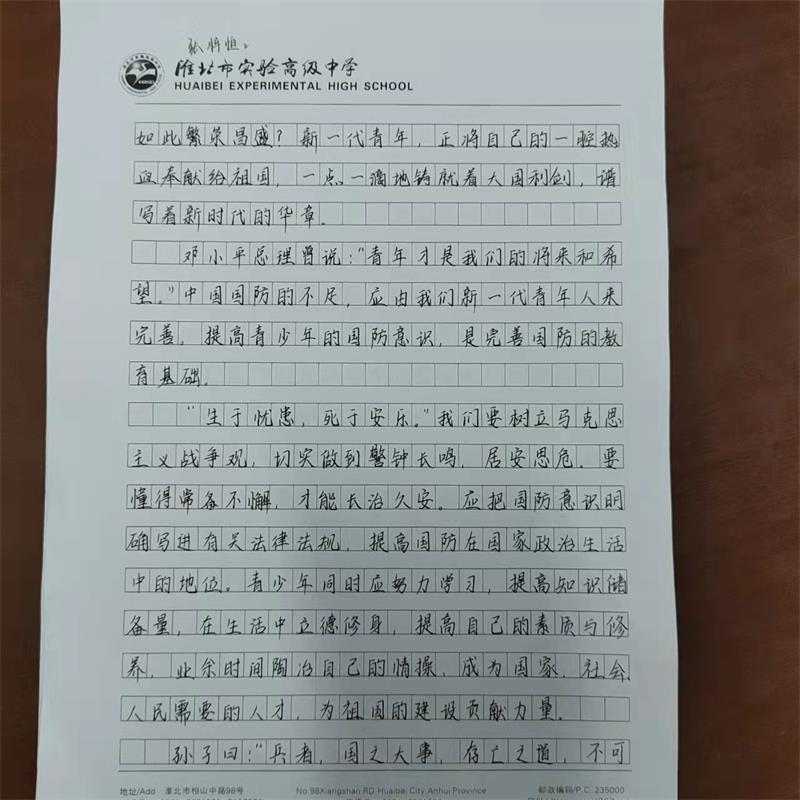 张将恒
淮北市实验高级中学
HUAIBEI EXPERIMENTAL HIGH SCHOOL
如此繁荣昌盛?新一代青年,正将自己的一腔热
血奉献给祖国,一点一滴地铸就着大国利剑,谱
写着新时代的华章。
邓小平总理曾说:“青年才是我们的将来和希
望。”中国国防的不足,应由我们新一代青年人来
完善。提高青少年的国防意识,是完善国防的教
育基础。
“生于忧患,死于安乐。”我们要树立马克思
主义战争观,切实做到警钟长鸣,居安思危。要
懂得常备不懈,才能长治久安。应把国防意识明
确写进有关法律法规,提高国防在国家政治生活
中的地位。青少年同时应努力学习,提高知识储
备量,在生活中立德修身,提高自己的素质与修
养,业余时间陶冶自己的情操,成为国家、社会、
人民需要的人才,为祖国的建设贡献力量。
孙子曰:“兵者,国之大事,存亡之道,不可
地址/Add 淮北市相山中路98号 No.98Xiangshan RD,Huaibei City,Anhui Province 邮政编码/P.C 235000